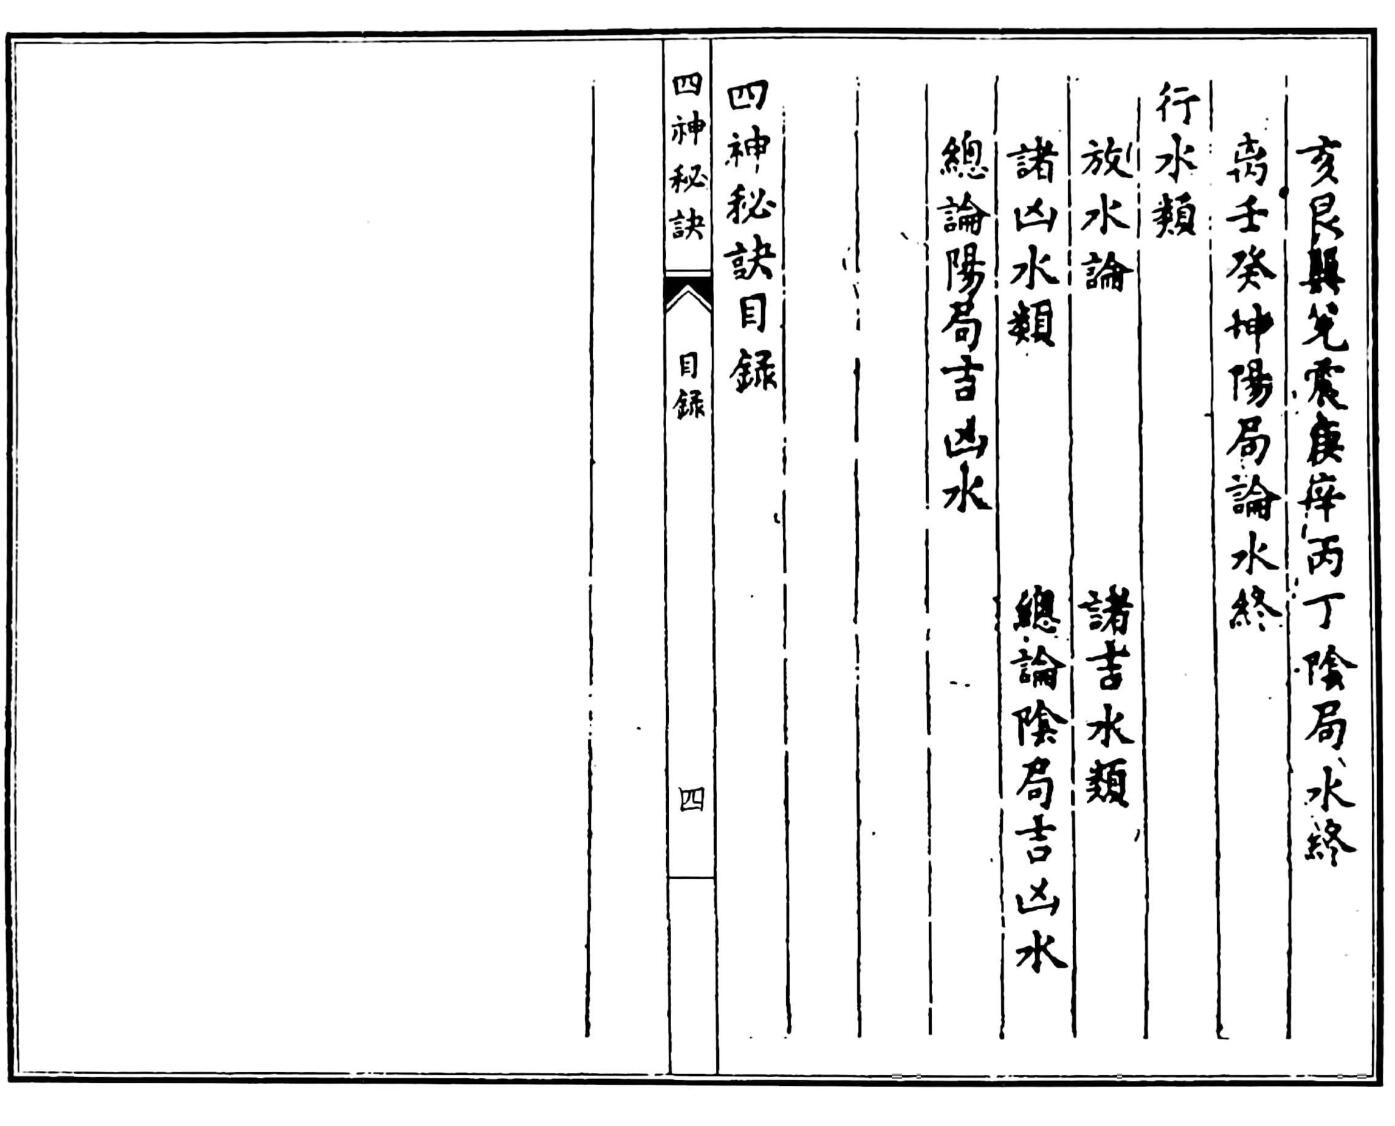 亥艮巽兌震庚辛丙丁陰局水終
离壬癸坤陽局論水終
行水類
放水論　諸吉水類
諸凶水類　總論陰局吉凶水
總論陽局吉凶水
四神秘訣目録
四神秘訣　目録　四